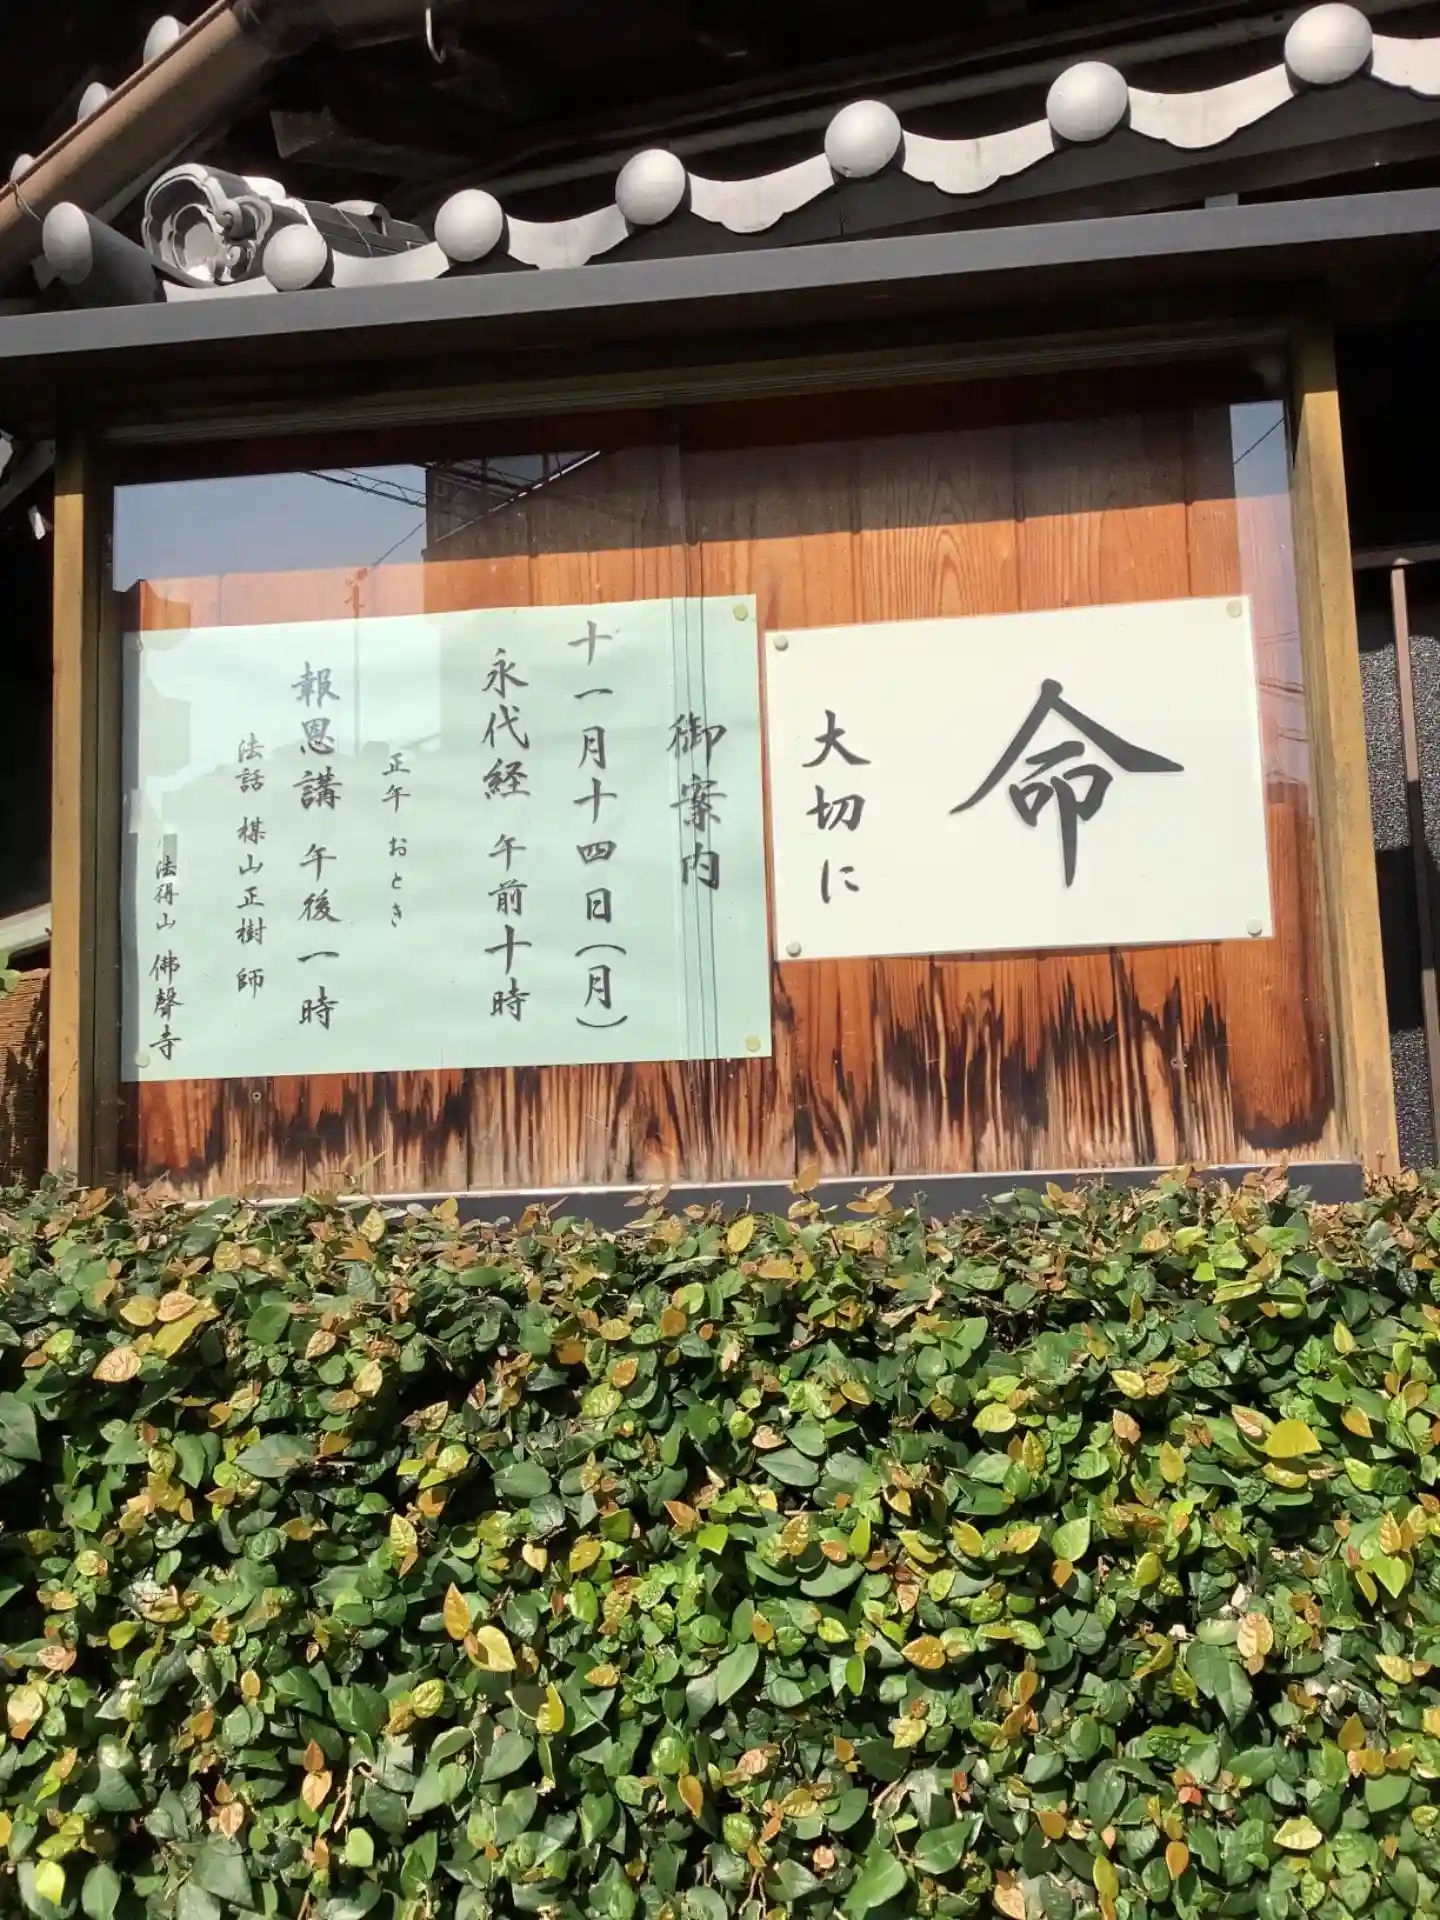 命
大切に
御案内
十一月十四日(月)
永代経 午前十時
正午 おとき
報恩講 午後一時
法話 楳山正樹 師
法得山 佛聲寺